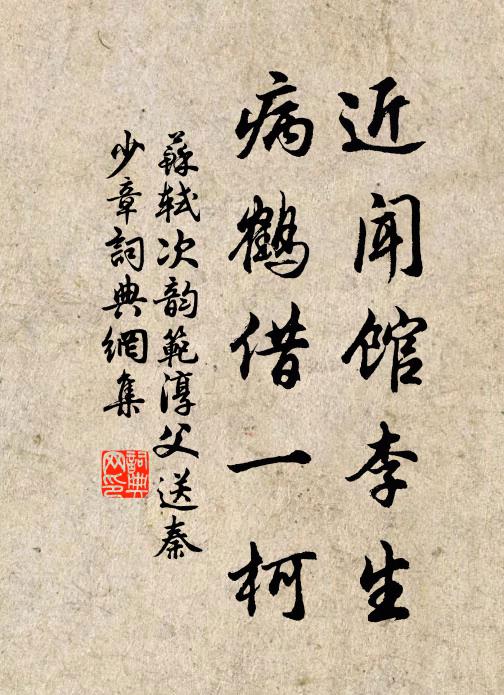 近闻馆李生
病鹤借一柯
蘇軾次韵範淳父送秦
少章詞典網集
詞典网印